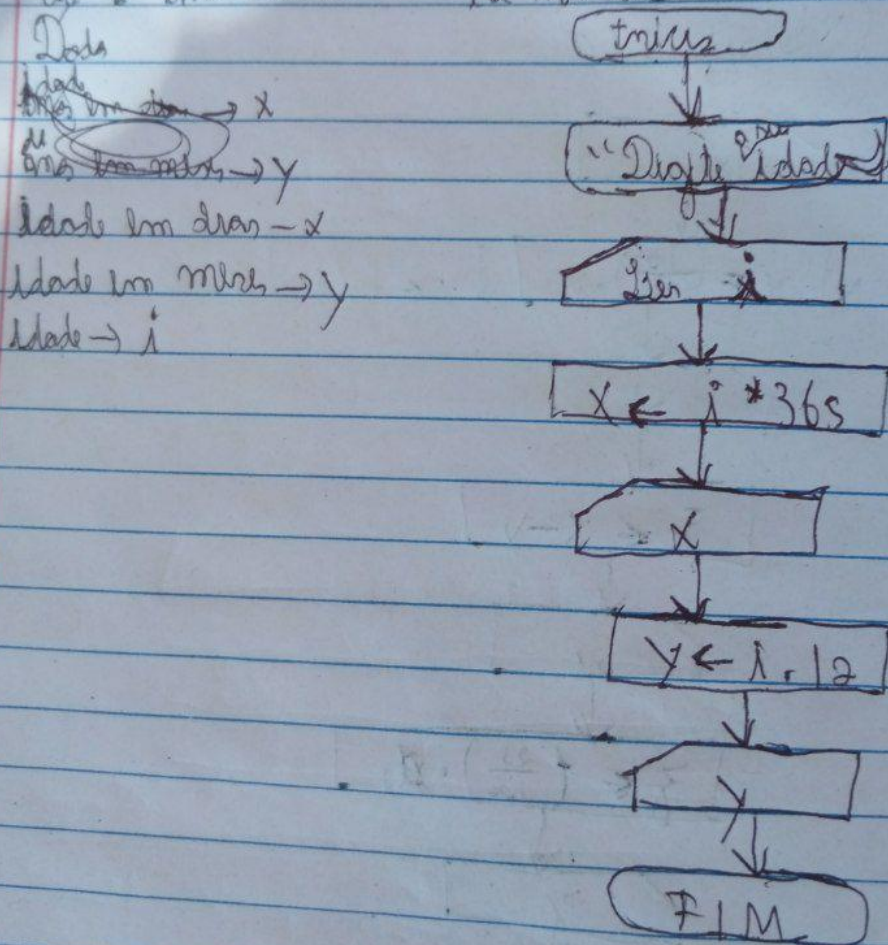 Dado
idade
anos em dias → X
anos em meses → Y
idade em dias - x
idade em meses → y
idade → i
Inicio
"Digite a sua idade"
Ler i
X ← i * 365
X
Y ← i . 12
Y
FIM